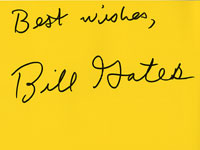 Best wishes,
Bill Gates